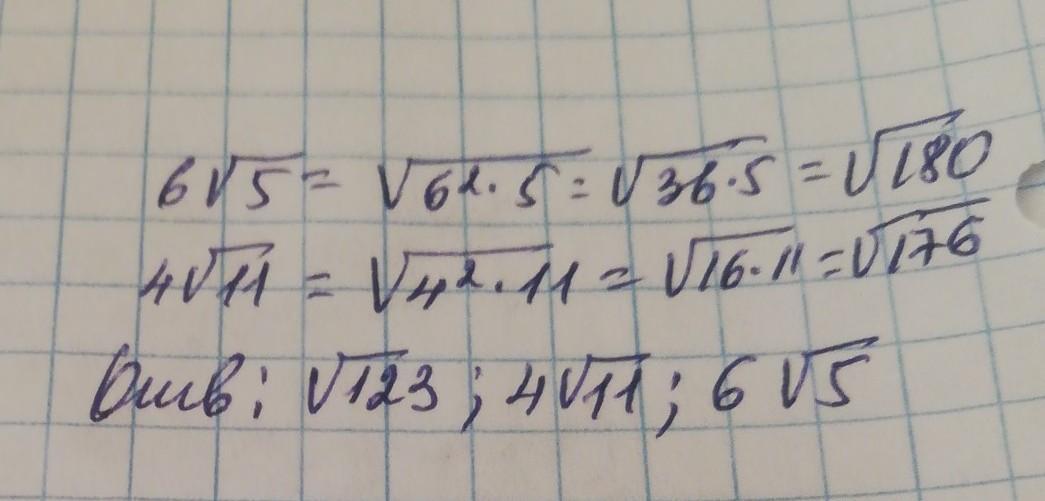 6√5 = √6²·5 = √36·5 = √180
4√11 = √4²·11 = √16·11 = √176
Отв: √123; 4√11; 6√5